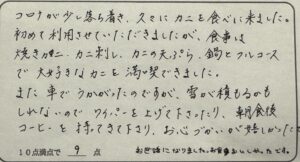 コロナが少し落ち着き、久々にカニを食べに来ました。
初めて利用させていただきましたが、食事は
焼きガニ、カニ刺し、カニの天ぷら、鍋とフルコース
で大好きなカニを満喫できました。
また車でうかがったのですが、雪が積もるかも
しれないのでワイパーを上げて下さったり、朝食後
コーヒーを持ってきて下さり、お心づかいが嬉しかったで
10点満点で 9 点
お世話になりました。お食事おいしかったです。